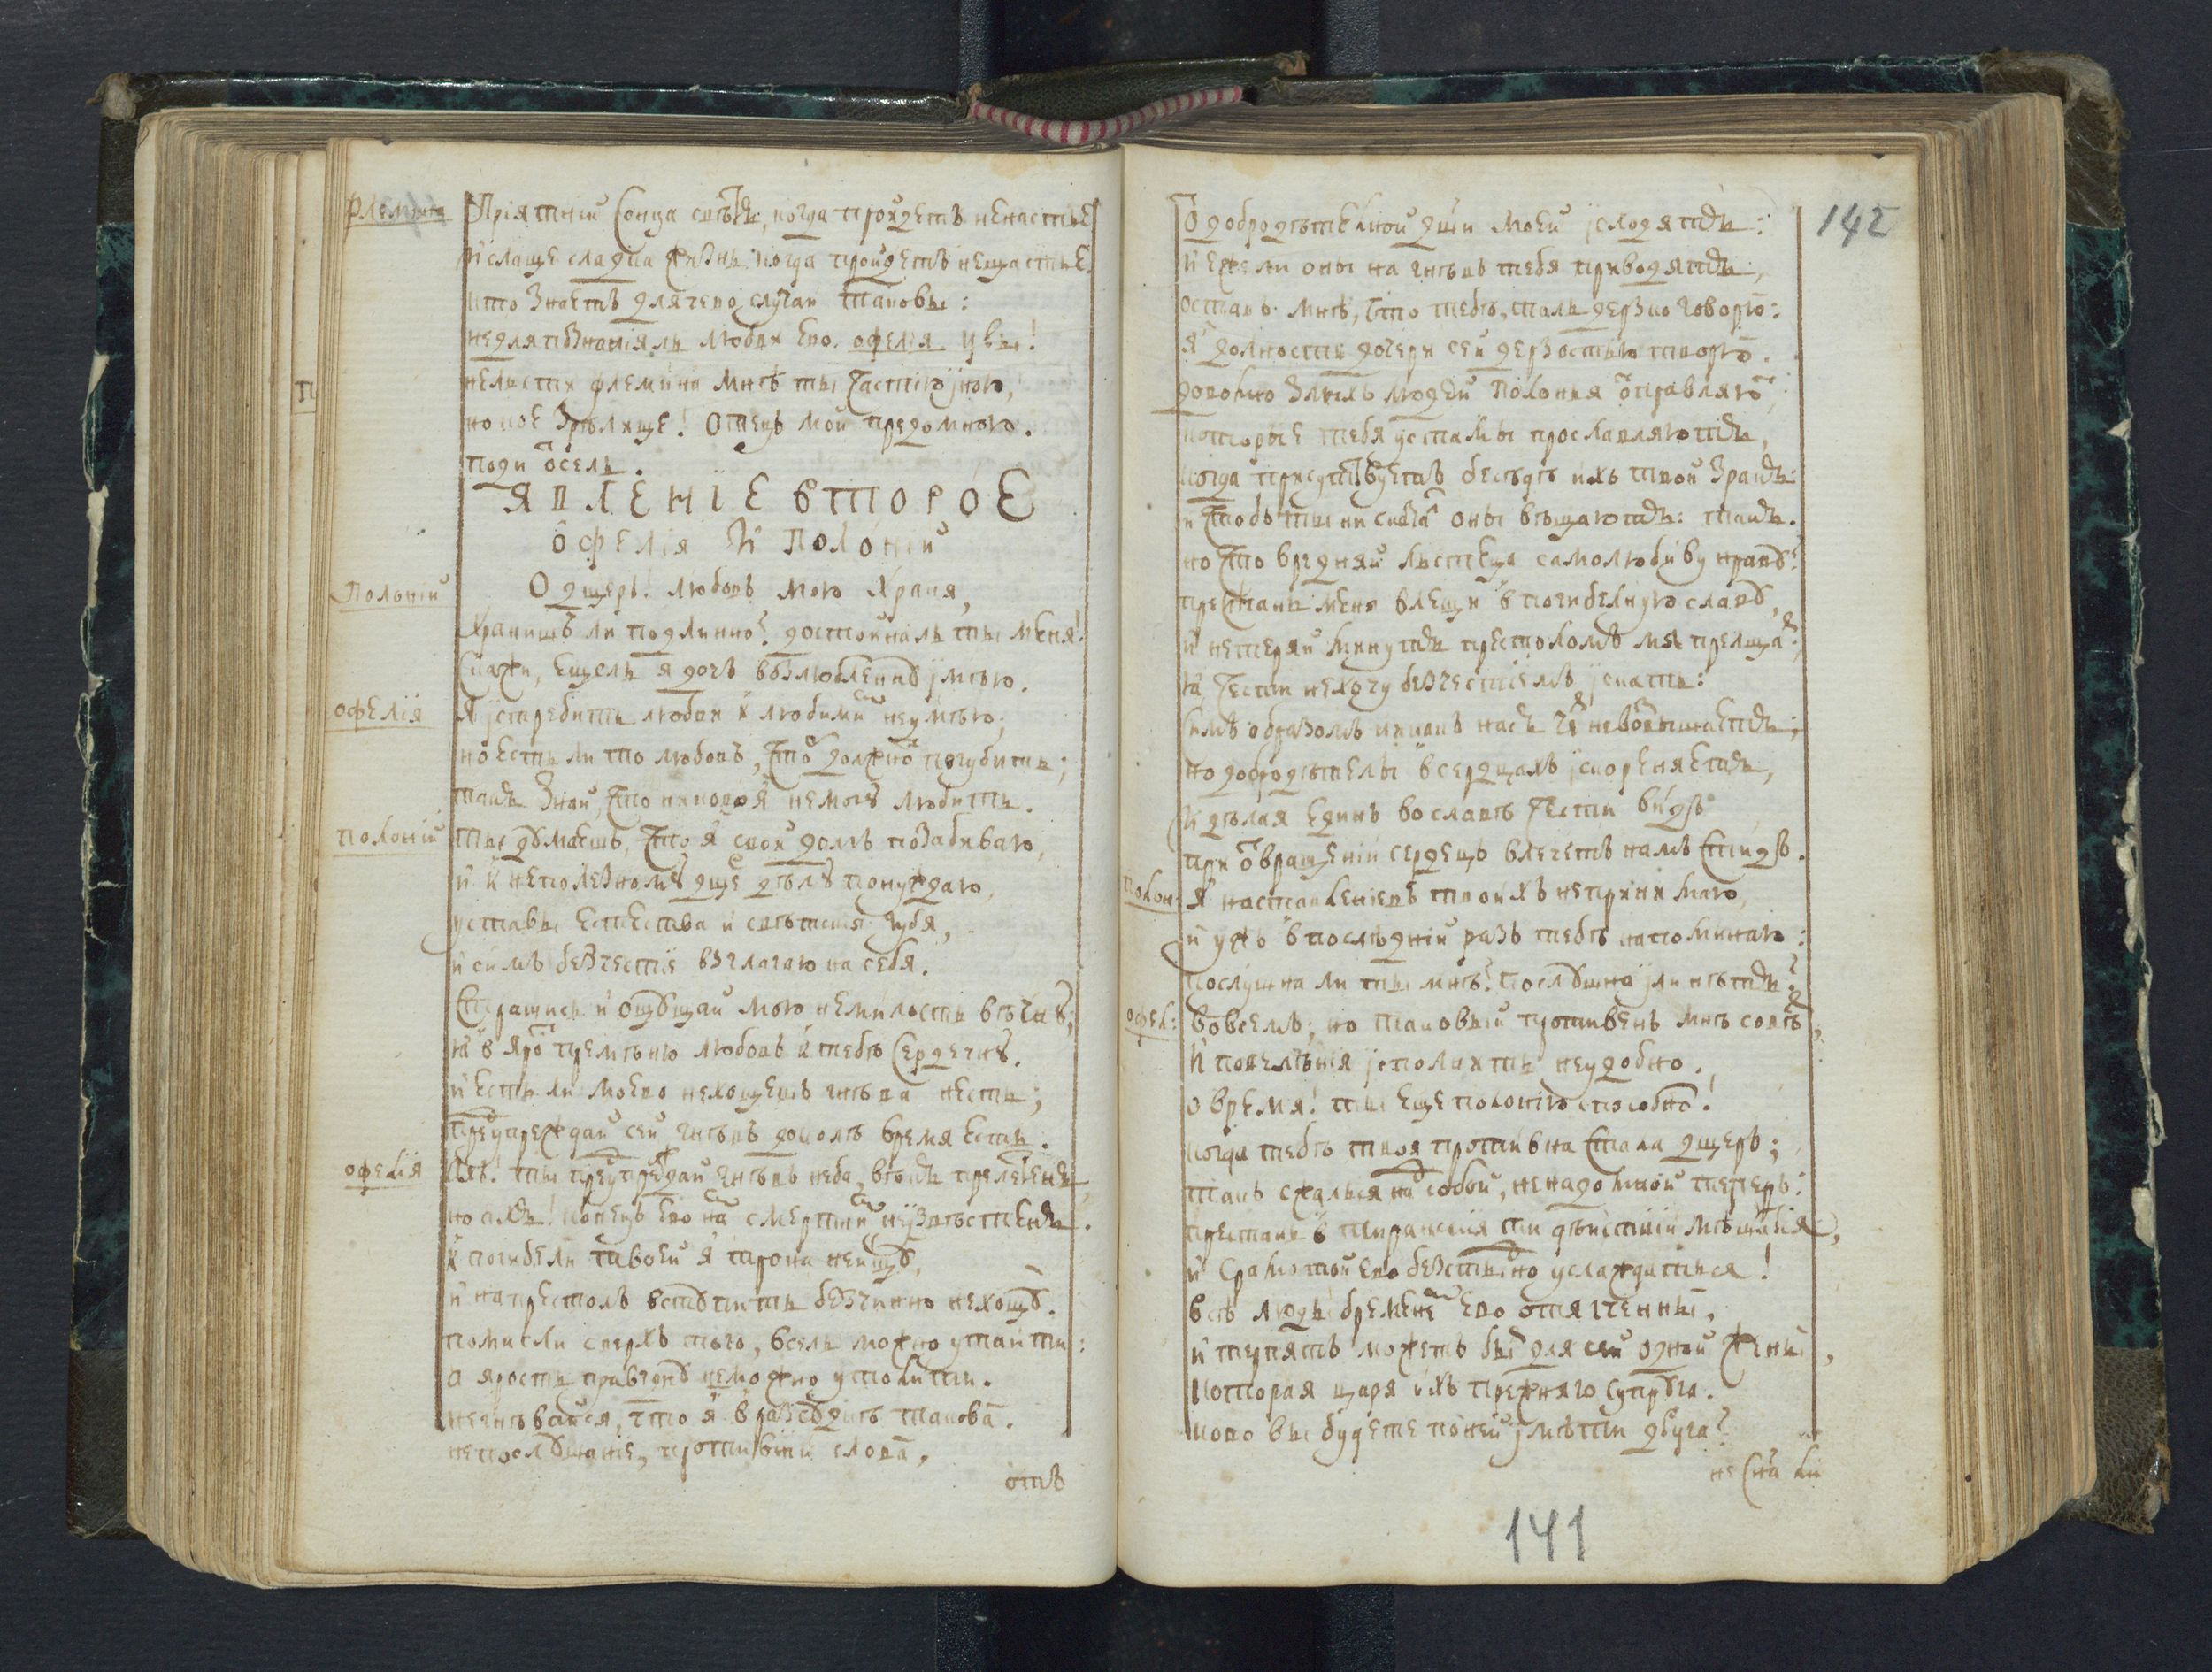 Флемина Прїятнїи Сонца свѣтъ, когда пройдетъ ненастье
И слаще сладка жизнь, когда пройдетъ нещастье.
кто знаетъ для чево, случаи таковы:
не для познанїяль любви ево. офелїя увы!
нельсти флемина мнѣ ты частїю иною,
но кое зрѣлище! Отецъ мой предомною.
поди ѿсель.
ЯВЛЕНІЕ ВТОРОЕ
ОФЕЛІЯ И ПОЛОНІЙ
Полонїй О дщерь! любовь мою храня,
Хранишъ ли подлинно? достойналь ты меня!
Скажи, ещель я дочь возлюбленну имѣю.
офелїя Я истребить любви к любими неумѣю;
но есть ли то любовь, что должно погубить;
такъ знай, что никово я немогу любить.
полонїй Ты думаешь, что я свой долгъ позабиваю,
и к неполезному дще дѣлу понуждаю,
уставы естества и свѣтскїя губя,
и симъ безчестїе взлагаю на себя.
Страшись и ощущай мою немилость вѣчну;
ꙗ в яро премѣню любовь к тебѣ сердечну.
и есть ли моево нехощешь гнѣва несть;
предупреждай сей гнѣвъ доколѣ время есть.
офелїя Ахъ! ты предупреждай гнѣвъ неба,
но ахъ! конецъ ево на смертни неизвѣстенъ.
к погибели твоей я трона неищу,
и на престолъ вступить безчинно нехощу.
помысли сверхъ того, всель можно утаити:
а ярость праведну неможно утолити.
негнѣвайся, что я в разсудкѣ такова.
непослушнїе, противнїи слова,
отъ
142
О добродѣтелной дщи моей исходятъ:
И ежели оны на гнѣвъ тебя приводятъ,
оставь мнѣ, что тебѣ, толь дерзко говорю:
я должность дочери сей дерзостью творю.
доволно злыхъ людей Полонїя ѿправляю,
которые тебя устами прославляютъ,
когда присутствуетъ бесѣдѣ ихъ твой зракъ:
и чтобъ ты ни сказа оны вѣщаютъ: такъ.
но что вредняй льстеца самолюбиву нраву?
престань меня влещи в погибелную славу,
и нетеряй минутъ престоломъ мя прелща:
ꙗ чести нехочу безчестїемъ искать:
симъ образомъ никакъ насъ
но добродѣтелы в сердцахъ искореняетъ,
и дѣлая единъ во славѣ чести видъ
при ѿвращенїи сердецъ влечетъ намъ стыдъ.
Полон: Я наставленїевъ твоихъ непринимаю,
и ужъ впослѣднїй разъ тебѣ напоминаю:
послушна ли ты мнѣ? Послушна или нѣтъ?
офел: Вовсемъ; но таковый противенъ мнѣ совѣтъ,
И повелѣнїя исполнить неудобно.
о время! ты еще полонїю способно!
когда тебѣ твоя противна стала дщерь;
такъ сжалься на собой, ненадомной теперь:
престань в тиранскїя ти дѣйствїи мѣшатся,
и срамотой ево безстыдно услаждаться!
всѣ люди бремене ево отягченны,
и терпятъ можетъ быть для сей одной жены,
которая царя ихъ прежняго супруга.
ково вы будете по ней имѣти друга?
не Сна ли
141